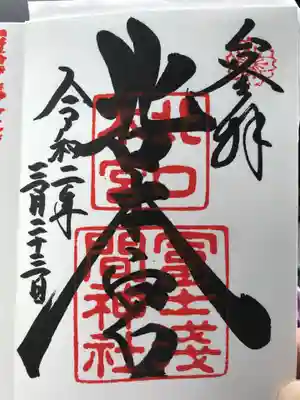 參拝
北口本宮
令和二年
三月二十三日
北口
本宮
冨士淺
間神社